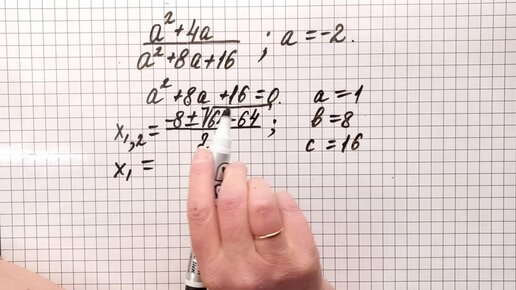 a²+4a / a²+8a+16 ; a = -2.
a²+8a+16=0. a=1
x₁,₂ = -8±√64-64 / 2 ; b=8
x₁ = c=16